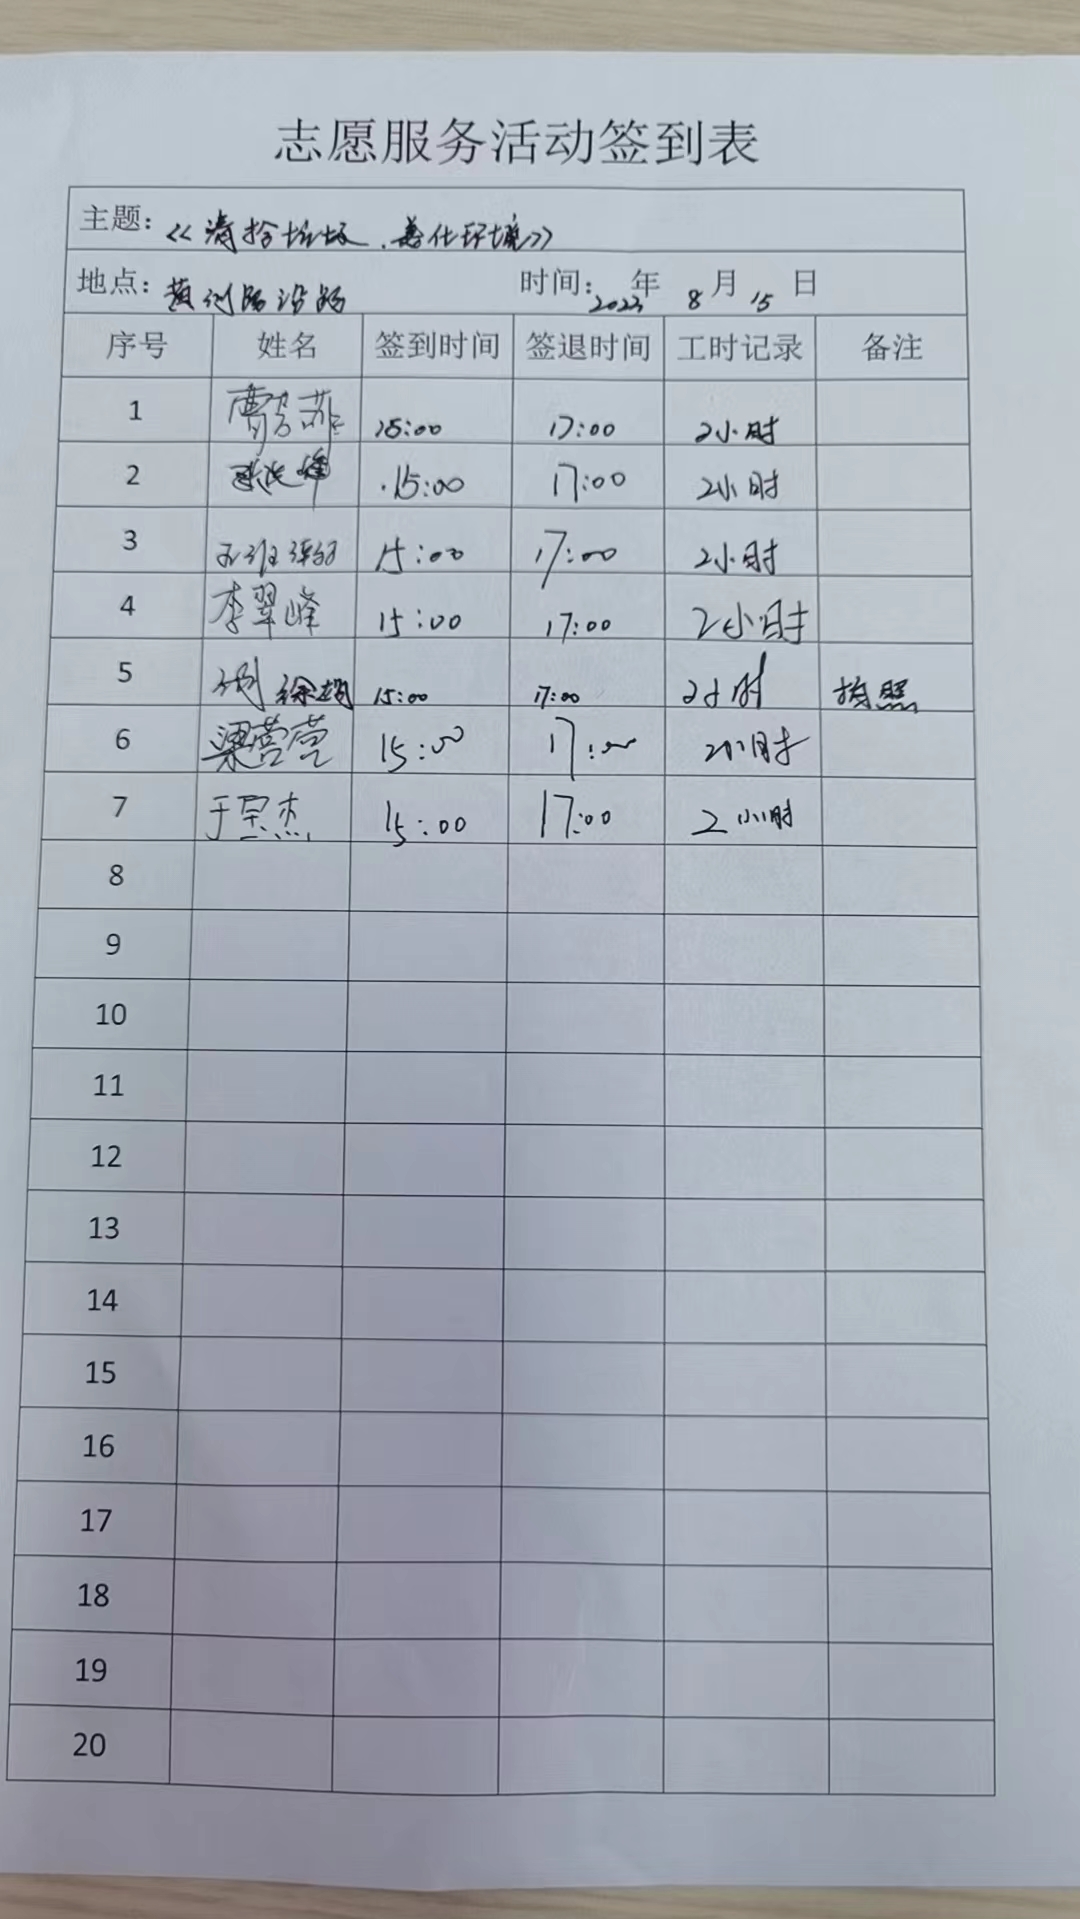 志愿服务活动签到表
主题：《清拾垃圾、善化环境》
地点：黄河路沿路 时间：2023年 8月 15日
序号 姓名 签到时间 签退时间 工时记录 备注
1 曹 15:00 17:00 2小时
2 15:00 17:00 2小时
3 15:00 17:00 2小时
4 李翠峰 15:00 17:00 2小时
5 15:00 17:00 2小时 拍照
6 梁营营 15:00 17:00 2小时
7 于杰 15:00 17:00 2小时
8
9
10
11
12
13
14
15
16
17
18
19
20